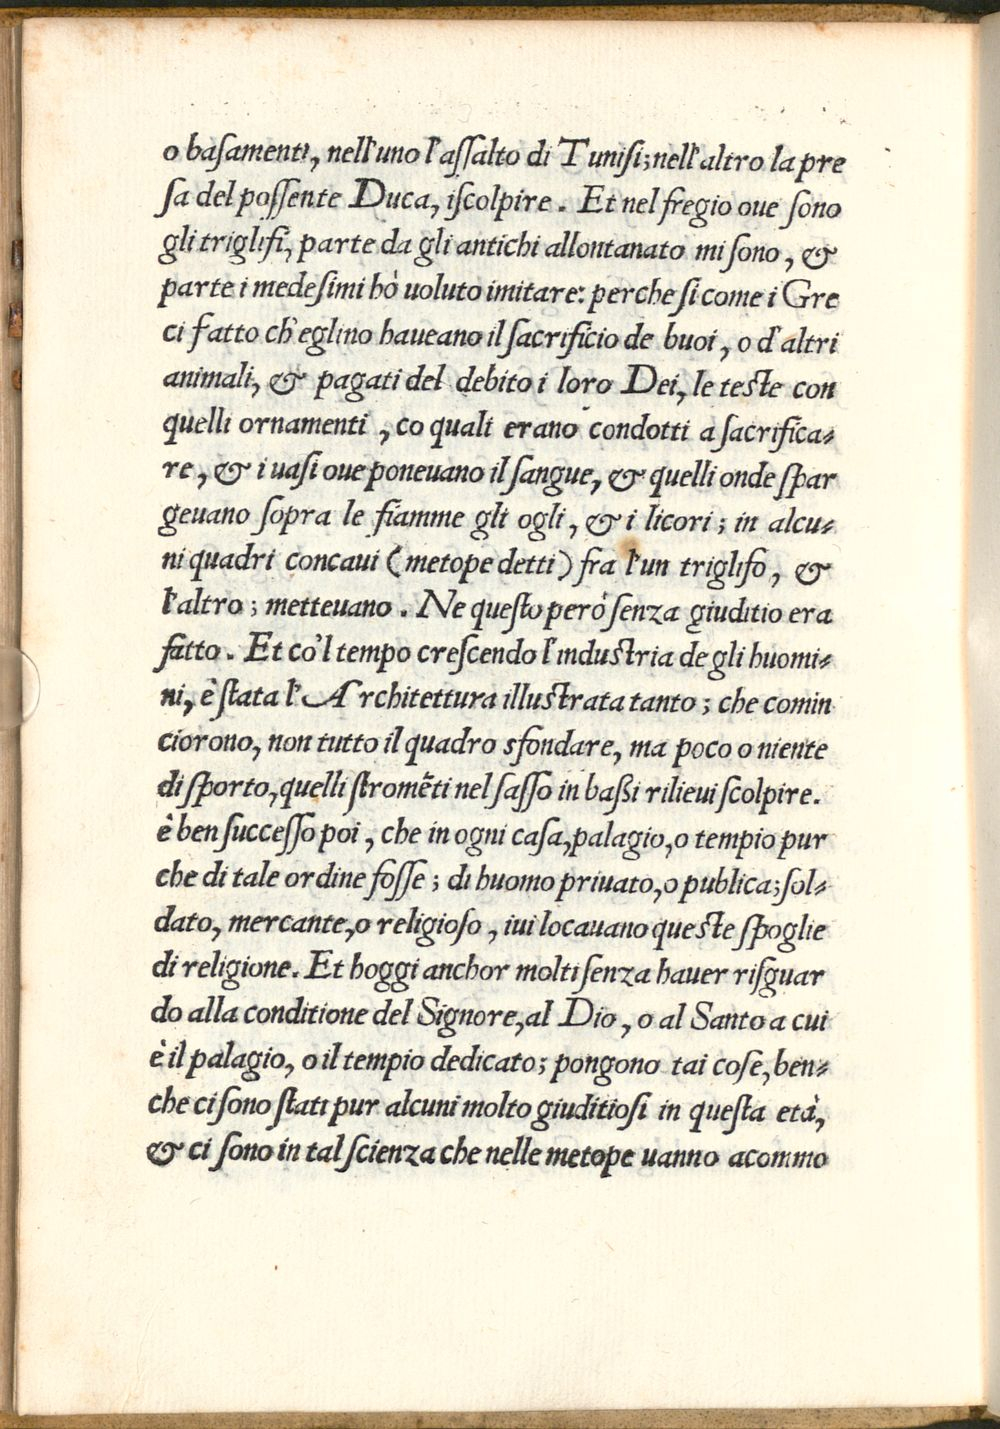 o basamenti, nell'uno l'assalto di Tunisi; nell'altro la pre
sa del possente Duca, iscolpire. Et nel fregio oue sono
gli triglifi, parte da gli antichi allontanato mi sono, &
parte i medesimi hò uoluto imitare: perche si come i Gre
ci fatto ch'eglino haueano il sacrificio de buoi, o d'altri
animali, & pagati del debito i loro Dei, le teste con
quelli ornamenti, co quali erano condotti a sacrifica-
re, & i uasi oue poneuano il sangue, & quelli onde spar
geuano sopra le fiamme gli ogli, & i licori; in alcu-
ni quadri concaui (metope detti) fra l'un triglifo, &
l'altro; metteuano. Ne questo però senza giuditio era
fatto. Et co'l tempo crescendo l'industria de gli huomi-
ni, è stata l'Architettura illustrata tanto; che comin
ciorono, non tutto il quadro sfondare, ma poco o niente
di sporto, quelli stromēti nel sasso in bassi rilieui scolpire.
è ben successo poi, che in ogni casa, palagio, o tempio pur
che di tale ordine fosse; di huomo priuato, o publica; sol-
dato, mercante, o religioso, iui locauano queste spoglie
di religione. Et hoggi anchor molti senza hauer risguar
do alla conditione del Signore, al Dio, o al Santo a cui
è il palagio, o il tempio dedicato; pongono tai cose, ben-
che ci sono stati pur alcuni molto giuditiosi in questa età,
& ci sono in tal scienza che nelle metope uanno acommo